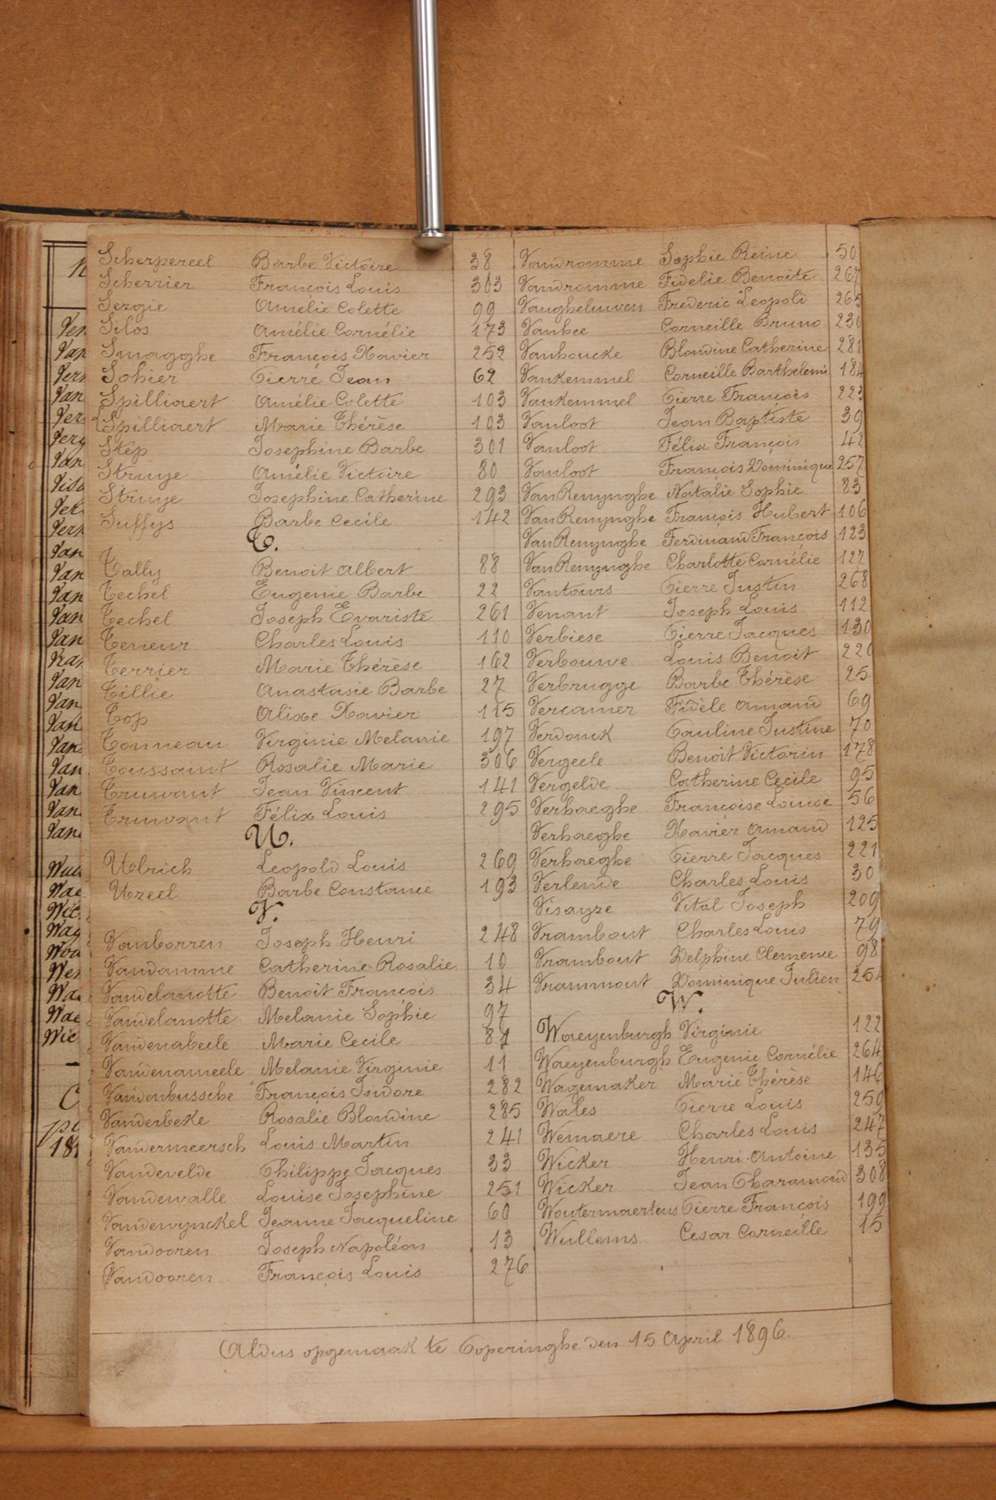 Scherpereel Barbe Victoire 38
Scherrier François Louis 303
Sergie Amélie Colette 99
Silos Amélie Cornélie 173
Smagghe François Xavier 252
Sohier Pierre Jean 62
Spilliaert Amélie Colette 103
Spilliaert Marie Thérèse 103
Stép Josephine Barbe 301
Struye Amélie Victoire 80
Struye Josephine Catherine 293
Suffys Barbe Cecile 142
T.
Tally Benoit Albert 88
Techel Eugenie Barbe 22
Techel Joseph Evariste 261
Teneur Charles Louis 110
Terrier Marie Thérèse 162
Tillie Anastasie Barbe 27
Top Alixe Xavier 115
Tonneau Virginie Melanie 197
Toussaint Rosalie Marie 306
Truwant Jean Vincent 141
Truwant Félix Louis 295
U.
Ulrich Leopold Louis 269
Uzeel Barbe Constance 193
V.
Vanborren Joseph Henri 248
Vandamme Catherine Rosalie 10
Vandelanotte Benoit François 34
Vandelanotte Melanie Sophie 97
Vandenabeele Marie Cecile
Vandenameele Melanie Virginie 11
Vandenbussche François Isidore 282
Vanderbeke Rosalie Blondine 285
Vandermeersch Louis Martin 241
Vandevelde Philippe Jacques 33
Vandewalle Louise Josephine 251
Vandewynckel Jeanne Jacqueline 60
Vandooren Joseph Napoléon 13
Vandooren François Louis 276
Vandromme Sophie Reine 50
Vandromme Fidelie Benoite 267
Vangheluwen Frederic Leopold 265
Vanhee Corneille Bruno 230
Vanhoucke Blondine Catherine 281
Vankemmel Corneille Barthelemi 184
Vankemmel Pierre François 223
Vanloot Jean Baptiste 39
Vanloot Félix François 48
Vanloot François Dominique 257
VanRenynghe Natalie Sophie 83
VanRenynghe François Hubert 106
VanRenynghe Ferdinand François 123
VanRenynghe Charlotte Cornélie 127
Vantours Pierre Justin 268
Venant Joseph Louis 112
Verbiese Pierre Jacques 130
Verbouwe Louis Benoit 220
Verbrugge Barbe Thérèse 25
Vercamer Fidèle Amand 69
Verdonck Pauline Justine 70
Vergeele Benoit Victorin 178
Vergelde Catherine Cecile 95
Verhaeghe Françoise Louise 56
Verhaeghe Xavier Armand 125
Verhaeghe Pierre Jacques 221
Verleure Charles Louis 30
Visayze Vital Joseph 209
Vrambout Charles Louis 79
Vrambout Delphine Clemence 98
Vrammout Dominique Julien 254
W.
Waeyenburgh Virginie 122
Waeyenburgh Eugenie Cornélie 264
Wagemaker Marie Thérèse 146
Wales Pierre Louis 259
Wemaere Charles Louis 247
Wicker Henri Antoine 135
Wicker Jean Charamond 308
Woutermaertens Pierre François 199
Wullems Cesar Corneille 15
Aldus opgemaakt te Poperinghe den 15 April 1896.